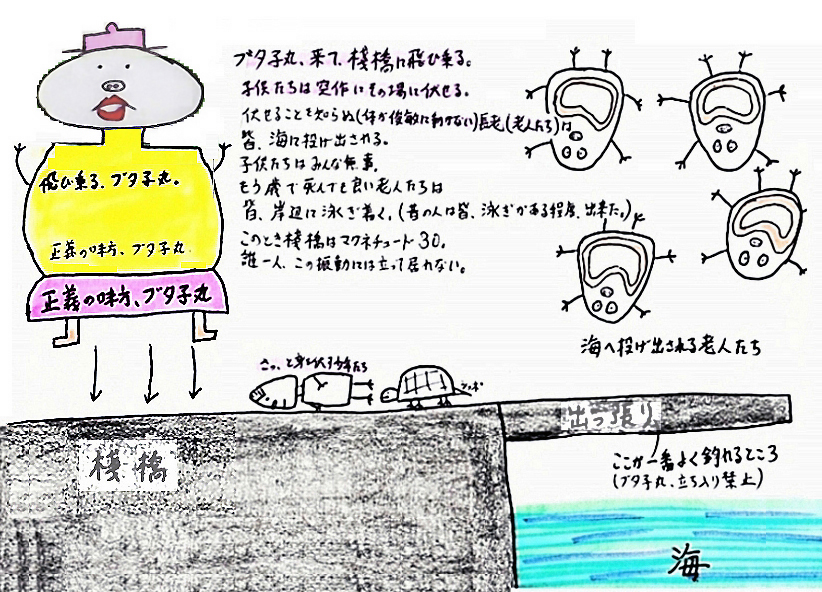 ブタ子丸、来て、棧橋に飛び乗る。
子供たちは空作にその場に伏せる。
伏せることを知らぬ(体が俊敏に動けない)長老(老人たち)は
皆、海に投げ出される。
子供たちはみんな無事。
もう歳で死んでも良い老人たちは
皆、岸辺に泳ぎ着く。(昔の人は皆、泳ぎがある程度、出来た。)
このとき棧橋はマグネチュード30。
誰一人、この振動には立って居れない。
飛び乗る、ブタ子丸。
正義の味方、ブタ子丸
正義の味方、ブタ子丸
海へ投げ出される老人たち
さっと身を伏す少年たち
棧橋
出っ張り
ここが一番よく釣れるところ
(ブタ子丸、立ち入り禁止)
海